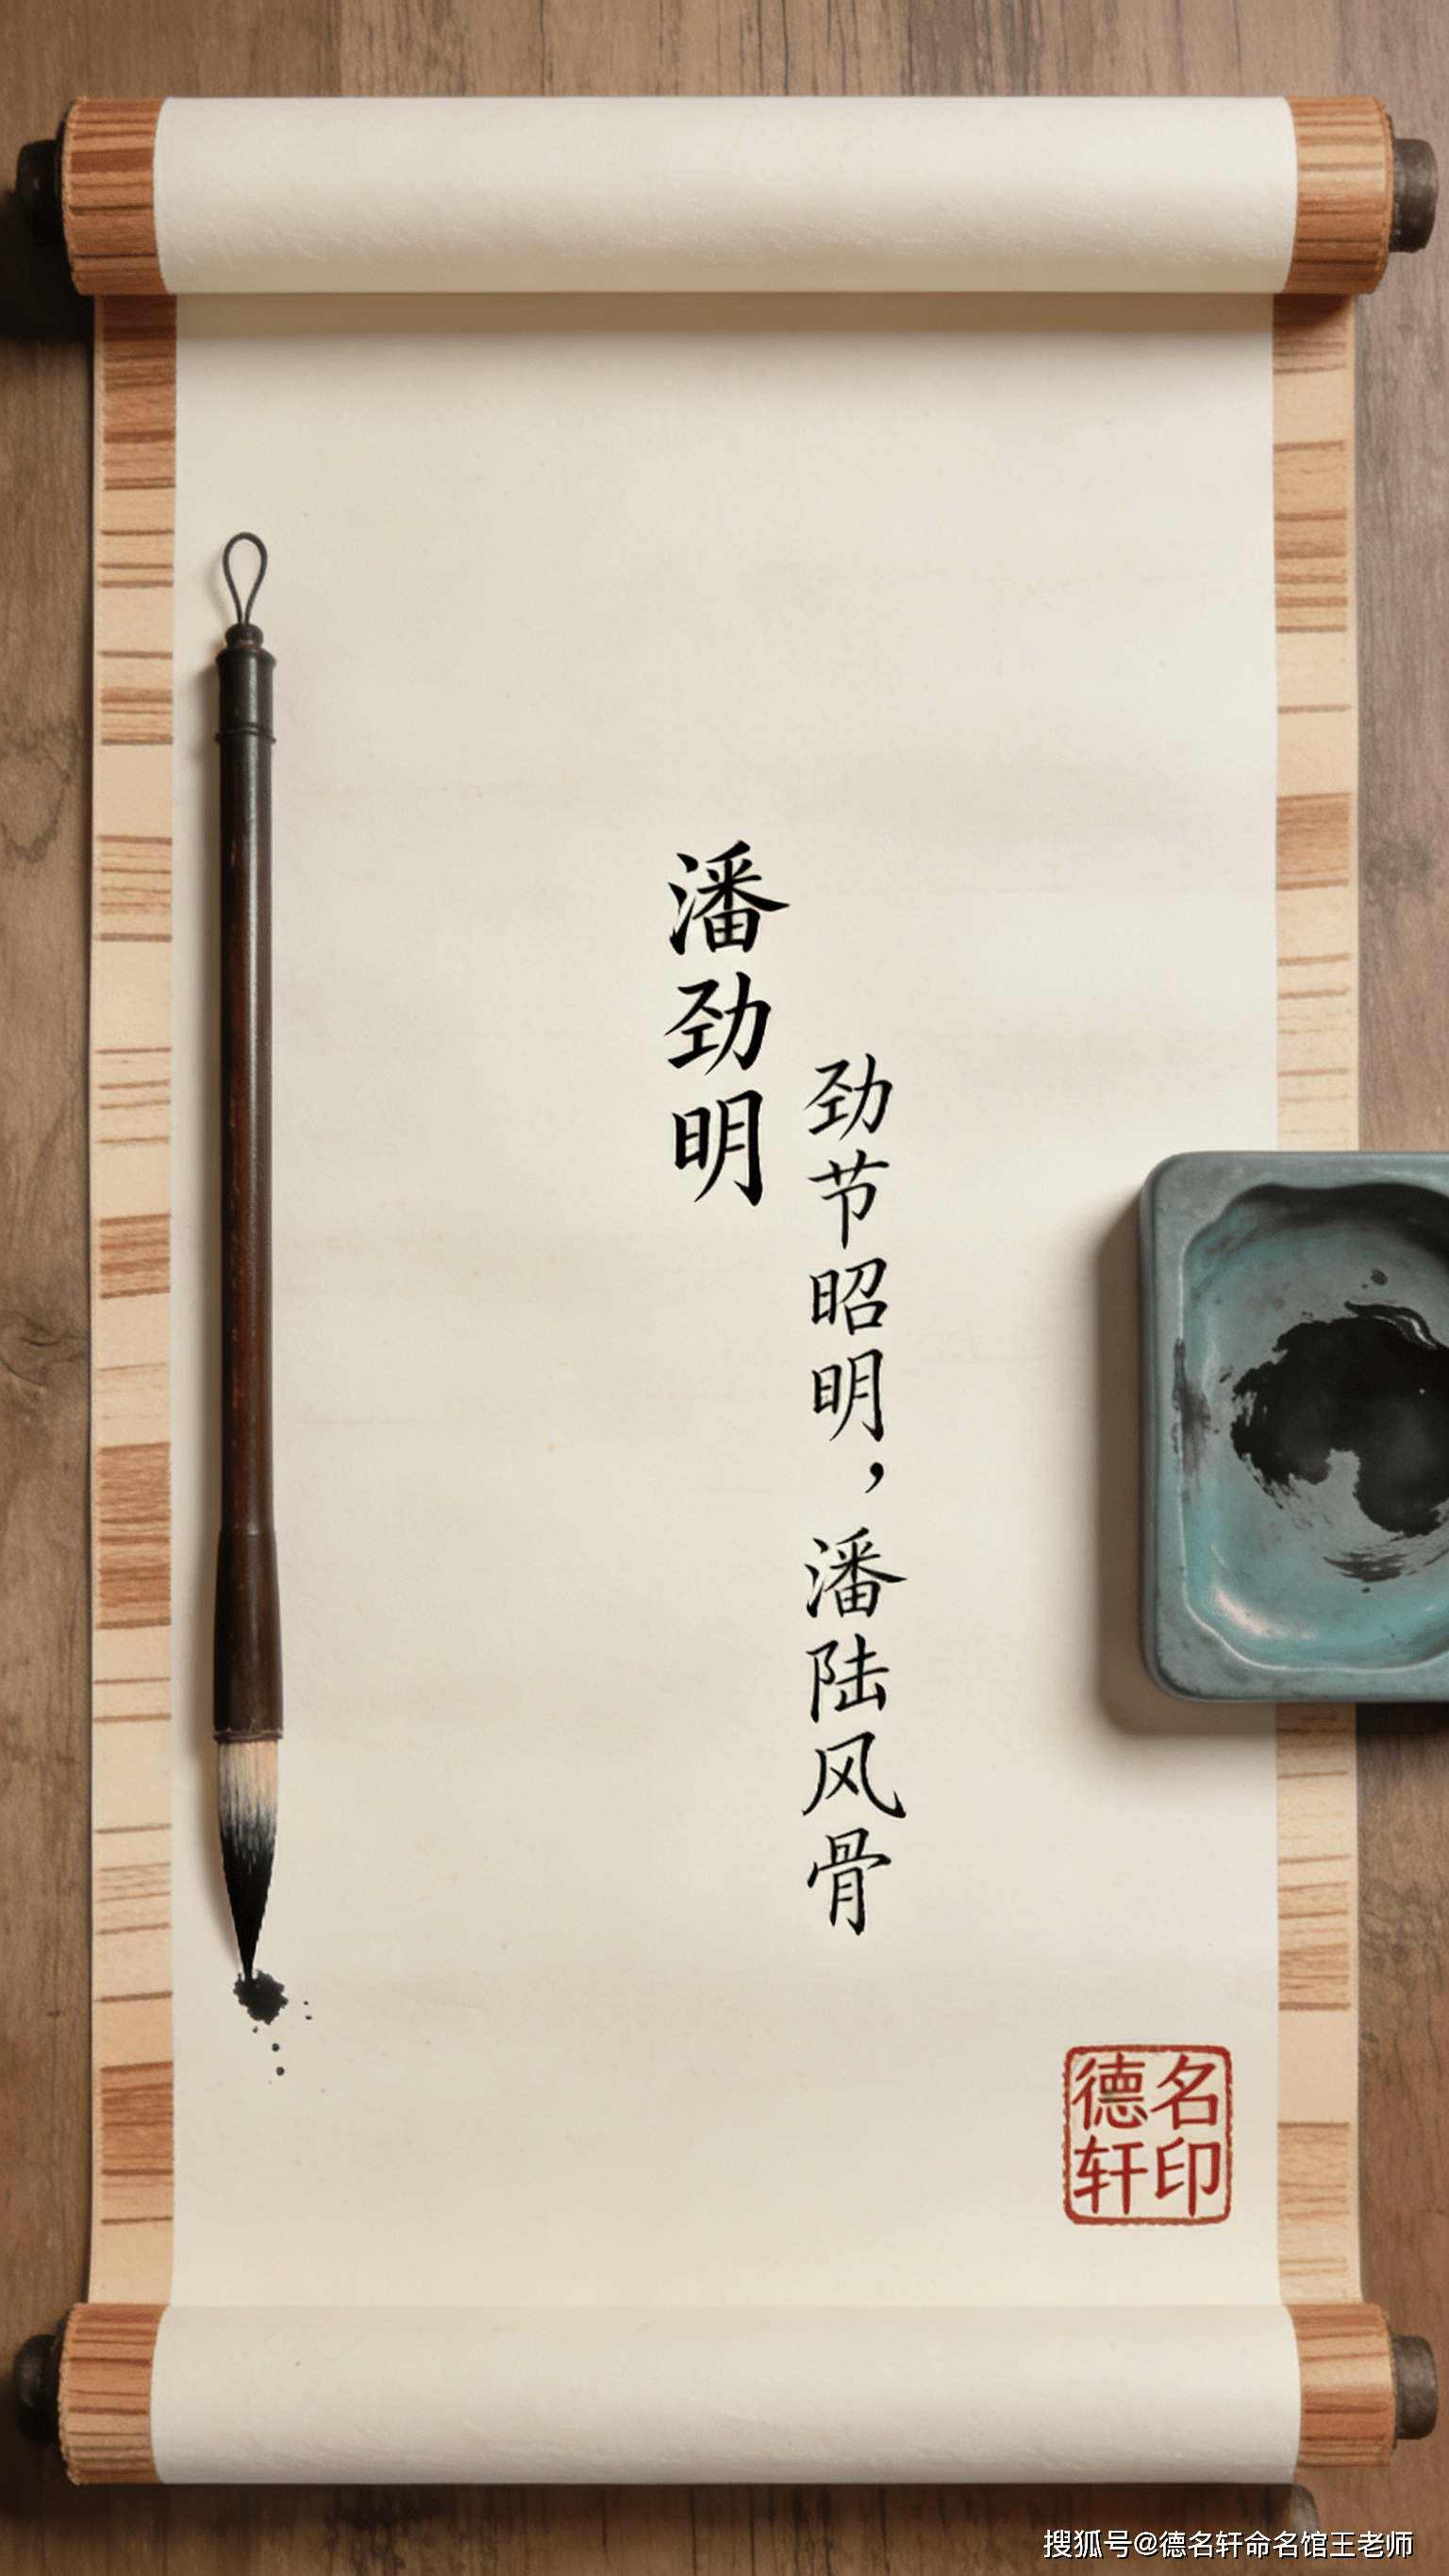 潘劲明
劲节昭明，潘陆风骨
德名
轩印
搜狐号@德名轩命名馆王老师